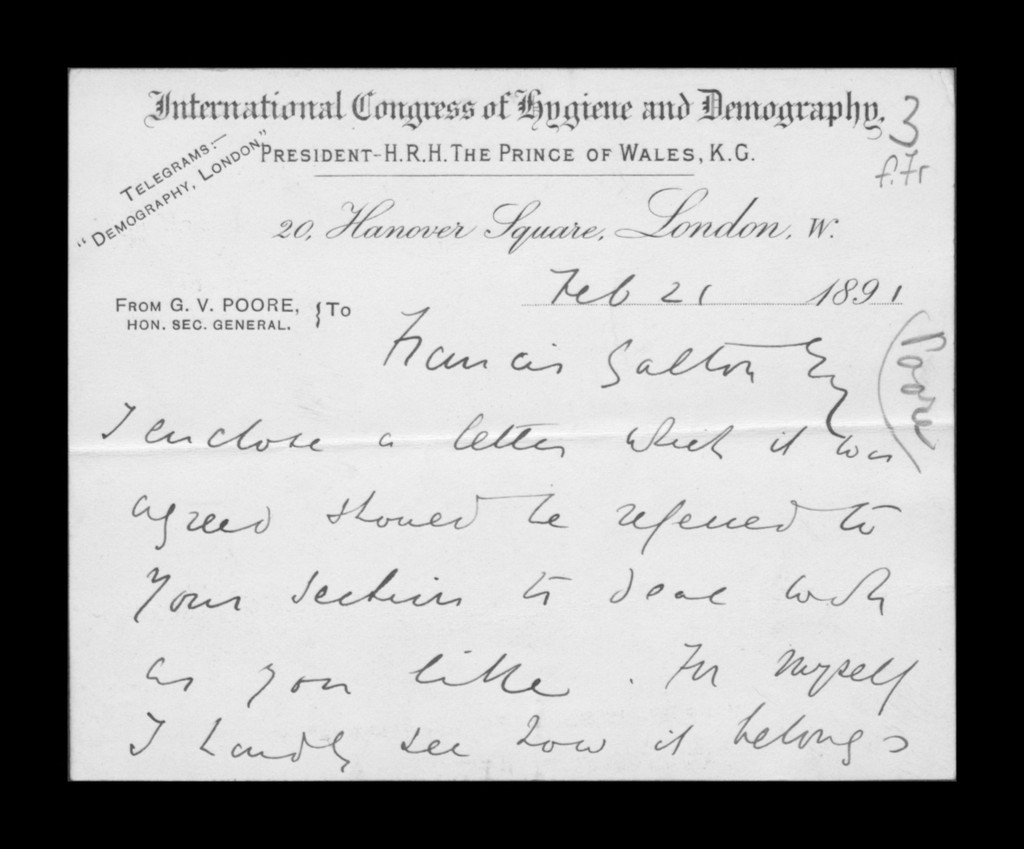 International Congress of Hygiene and Demography.
3
f.7r
TELEGRAMS:—
"DEMOGRAPHY, LONDON"
PRESIDENT-H.R.H. THE PRINCE OF WALES, K.G.
20, Hanover Square, London, W.
Feb 21 1891
FROM G. V. POORE,
HON. SEC. GENERAL. } TO
Francis Galton Esq
(Poore)
I enclose a letter which it was
agreed should be referred to
your section to deal with
as you like. For myself
I hardly see how it belongs